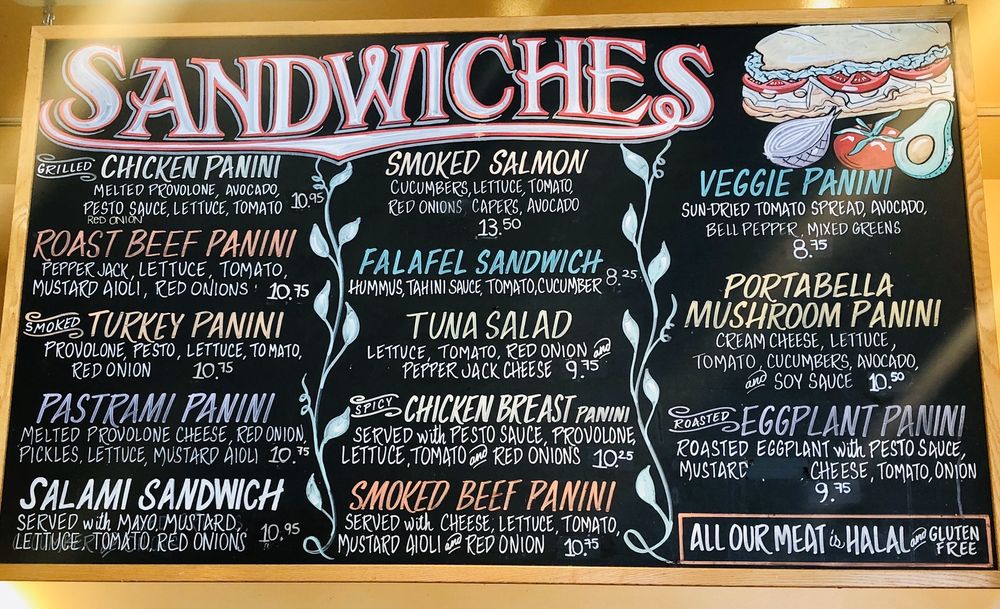 SANDWICHES
GRILLED CHICKEN PANINI
MELTED PROVOLONE, AVOCADO,
PESTO SAUCE, LETTUCE, TOMATO 10.95
RED ONION
ROAST BEEF PANINI
PEPPER JACK, LETTUCE, TOMATO,
MUSTARD AIOLI, RED ONIONS 10.75
SMOKED TURKEY PANINI
PROVOLONE, PESTO, LETTUCE, TOMATO,
RED ONION 10.75
PASTRAMI PANINI
MELTED PROVOLONE CHEESE, RED ONION,
PICKLES, LETTUCE, MUSTARD AIOLI 10.75
SALAMI SANDWICH
SERVED with MAYO, MUSTARD,
LETTUCE, TOMATO, RED ONIONS 10.95
SMOKED SALMON
CUCUMBERS, LETTUCE, TOMATO,
RED ONIONS, CAPERS, AVOCADO
13.50
FALAFEL SANDWICH
HUMMUS, TAHINI SAUCE, TOMATO, CUCUMBER 8.25
TUNA SALAD
LETTUCE, TOMATO, RED ONION and
PEPPER JACK CHEESE 9.75
SPICY CHICKEN BREAST PANINI
SERVED with PESTO SAUCE, PROVOLONE,
LETTUCE, TOMATO and RED ONIONS 10.25
SMOKED BEEF PANINI
SERVED with CHEESE, LETTUCE, TOMATO,
MUSTARD AIOLI and RED ONION 10.75
VEGGIE PANINI
SUN-DRIED TOMATO SPREAD, AVOCADO,
BELL PEPPER, MIXED GREENS
8.75
PORTABELLA
MUSHROOM PANINI
CREAM CHEESE, LETTUCE,
TOMATO, CUCUMBERS, AVOCADO,
and SOY SAUCE 10.50
ROASTED EGGPLANT PANINI
ROASTED EGGPLANT with PESTO SAUCE,
MUSTARD CHEESE, TOMATO, ONION
9.75
ALL OUR MEAT is HALAL and GLUTEN
FREE